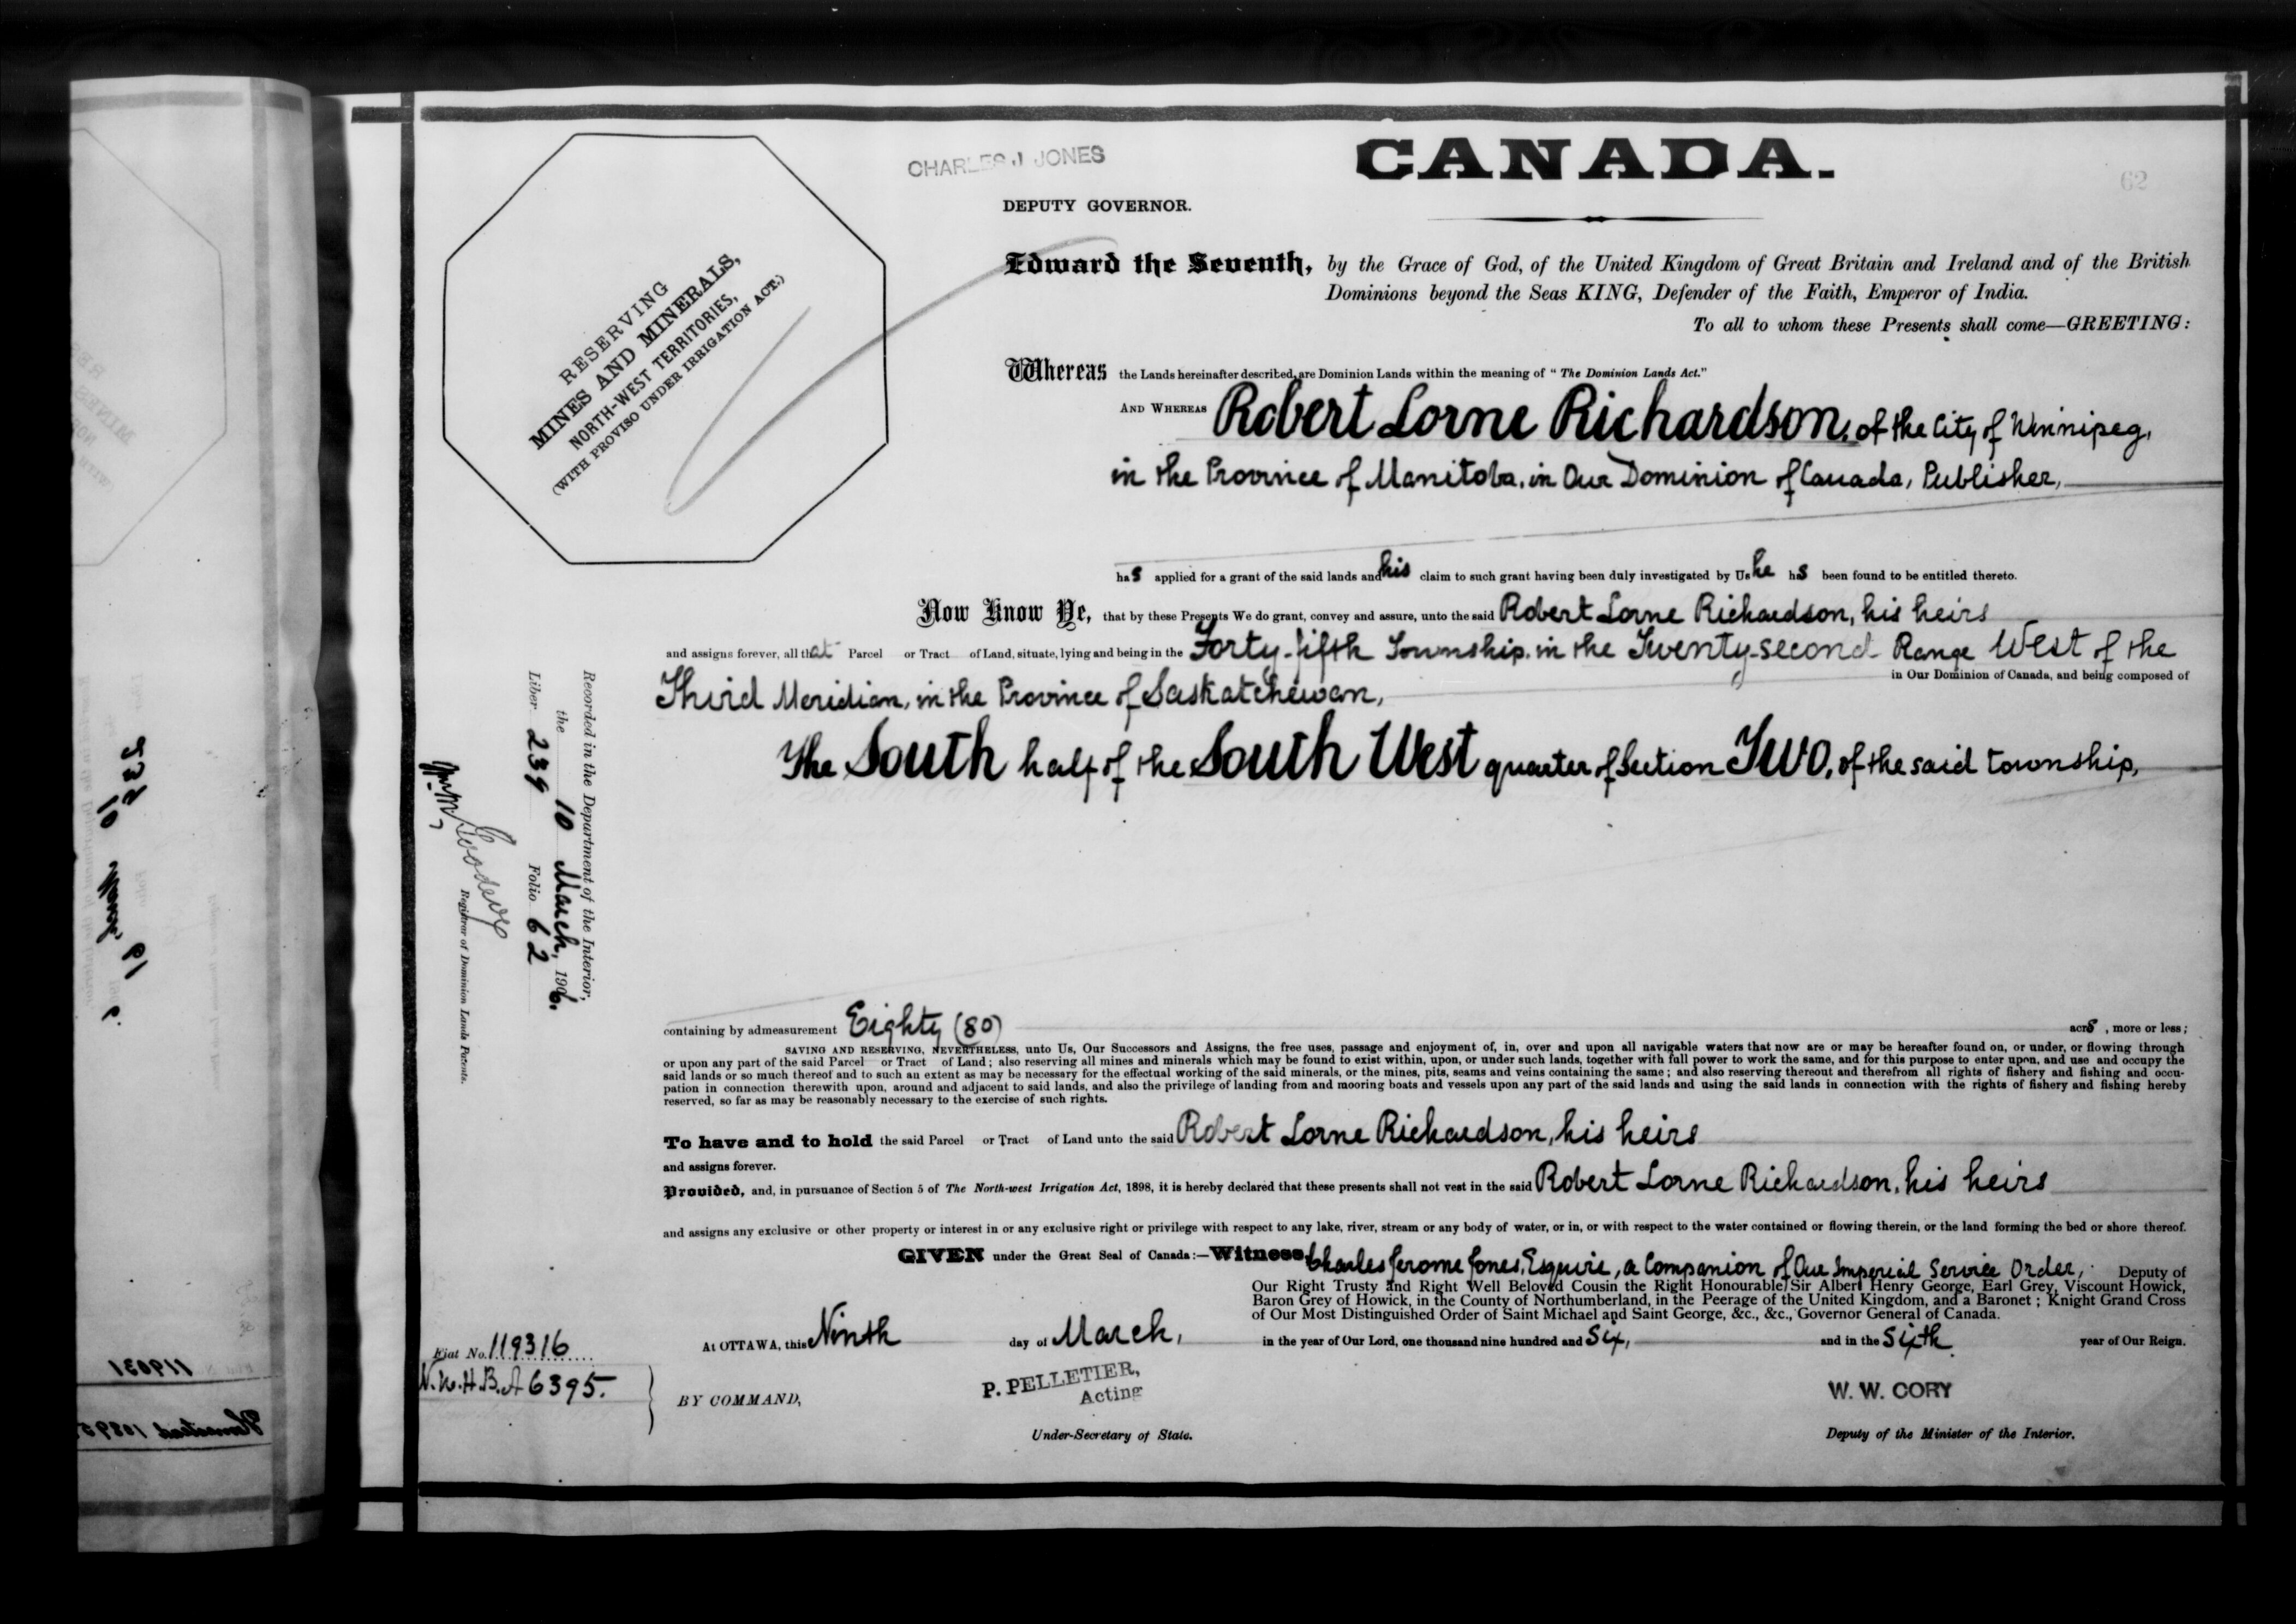 CHARLES J JONES
CANADA.
62
DEPUTY GOVERNOR.
RESERVING
MINES AND MINERALS,
NORTH-WEST TERRITORIES,
(WITH PROVISO UNDER IRRIGATION ACT.)
Edward the Seventh, by the Grace of God, of the United Kingdom of Great Britain and Ireland and of the British
Dominions beyond the Seas KING, Defender of the Faith, Emperor of India.
To all to whom these Presents shall come—GREETING:
Whereas the Lands hereinafter described, are Dominion Lands within the meaning of "The Dominion Lands Act."
AND WHEREAS Robert Lorne Richardson, of the City of Winnipeg,
in the Province of Manitoba, in Our Dominion of Canada, Publisher,
has applied for a grant of the said lands and his claim to such grant having been duly investigated by Us he hs been found to be entitled thereto.
Now Know Ye, that by these Presents We do grant, convey and assure, unto the said Robert Lorne Richardson, his heirs
and assigns forever, all that Parcel or Tract of Land, situate, lying and being in the Forty-fifth Township, in the Twenty-second Range West of the
Third Meridian, in the Province of Saskatchewan, in Our Dominion of Canada, and being composed of
The South half of the South West quarter of Section Two, of the said township,
Recorded in the Department of the Interior,
the 10 March, 1906.
Liber 239 Folio 62
Registrar of Dominion Lands Patents.
containing by admeasurement Eighty (80) acrs, more or less;
SAVING AND RESERVING, NEVERTHELESS, unto Us, Our Successors and Assigns, the free uses, passage and enjoyment of, in, over and upon all navigable waters that now are or may be hereafter found on, or under, or flowing through
or upon any part of the said Parcel or Tract of Land; also reserving all mines and minerals which may be found to exist within, upon, or under such lands, together with full power to work the same, and for this purpose to enter upon, and use and occupy the
said lands or so much thereof and to such an extent as may be necessary for the effectual working of the said minerals, or the mines, pits, seams and veins containing the same; and also reserving thereout and therefrom all rights of fishery and fishing and occu-
pation in connection therewith upon, around and adjacent to said lands, and also the privilege of landing from and mooring boats and vessels upon any part of the said lands and using the said lands in connection with the rights of fishery and fishing hereby
reserved, so far as may be reasonably necessary to the exercise of such rights.
To have and to hold the said Parcel or Tract of Land unto the said Robert Lorne Richardson, his heirs
and assigns forever.
Provided, and, in pursuance of Section 5 of The North-west Irrigation Act, 1898, it is hereby declared that these presents shall not vest in the said Robert Lorne Richardson, his heirs
and assigns any exclusive or other property or interest in or any exclusive right or privilege with respect to any lake, river, stream or any body of water, or in, or with respect to the water contained or flowing therein, or the land forming the bed or shore thereof.
GIVEN under the Great Seal of Canada:—Witness Charles Jerome Jones, Esquire, a Companion of Our Imperial Service Order, Deputy of
Our Right Trusty and Right Well Beloved Cousin the Right Honourable Sir Albert Henry George, Earl Grey, Viscount Howick,
Baron Grey of Howick, in the County of Northumberland, in the Peerage of the United Kingdom, and a Baronet; Knight Grand Cross
of Our Most Distinguished Order of Saint Michael and Saint George, &c., &c., Governor General of Canada.
At OTTAWA, this Ninth day of March, in the year of Our Lord, one thousand nine hundred and Six, and in the Sixth year of Our Reign.
Fiat No. 119316
N.W.H.B.A 6395.
BY COMMAND,
P. PELLETIER,
Acting
Under-Secretary of State.
W. W. CORY
Deputy of the Minister of the Interior.